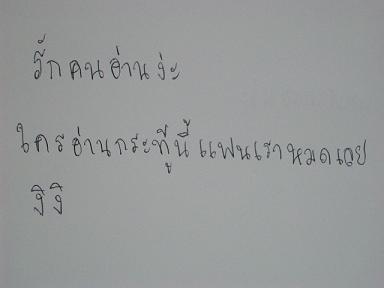 รักคนอ่านง่ะ
ใครอ่านกระทู้นี้แฟนเราหมดเวย
งิงิ